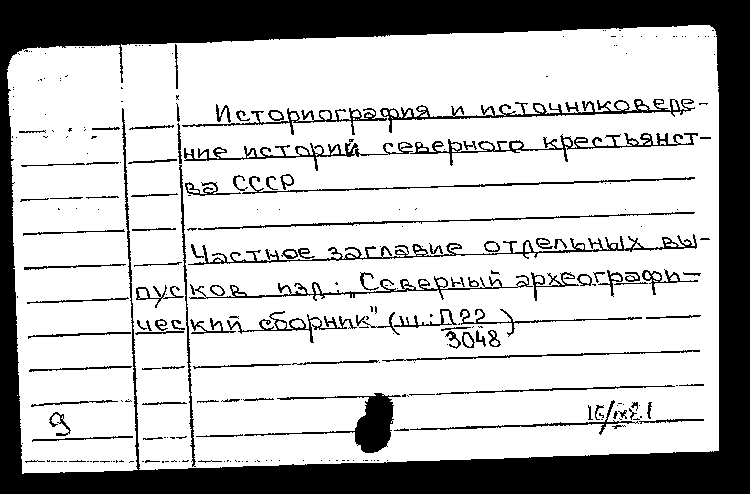 Историография и источниковеде-
ние историй северного крестьянст-
ва СССР
Частное заглавие отдельных вы-
пусков изд.: „Северный археографи-
ческий сборник" (ш.: П22
3048)
9